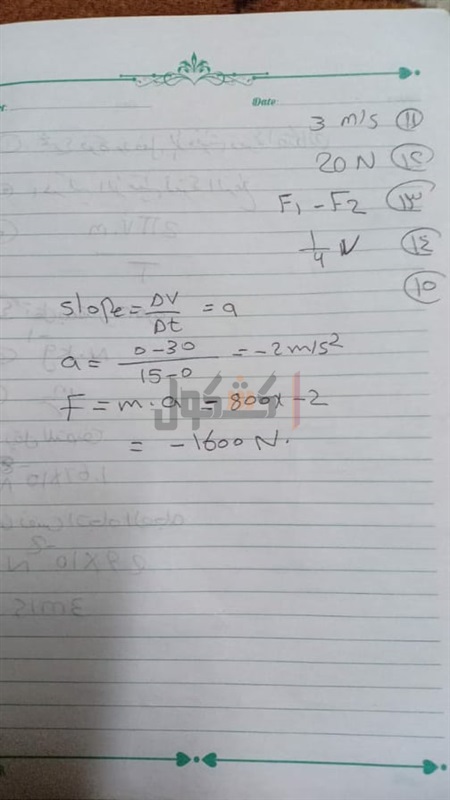 Date
3 m/s ⑪
20 N ⑫
F₁ - F₂ ⑬
1/4 N ⑭
⑮
slope = ΔV/Δt = a
a = 0-30/15-0 = -2 m/s²
كشكول
F = m . a = 800 x -2
= -1600 N.